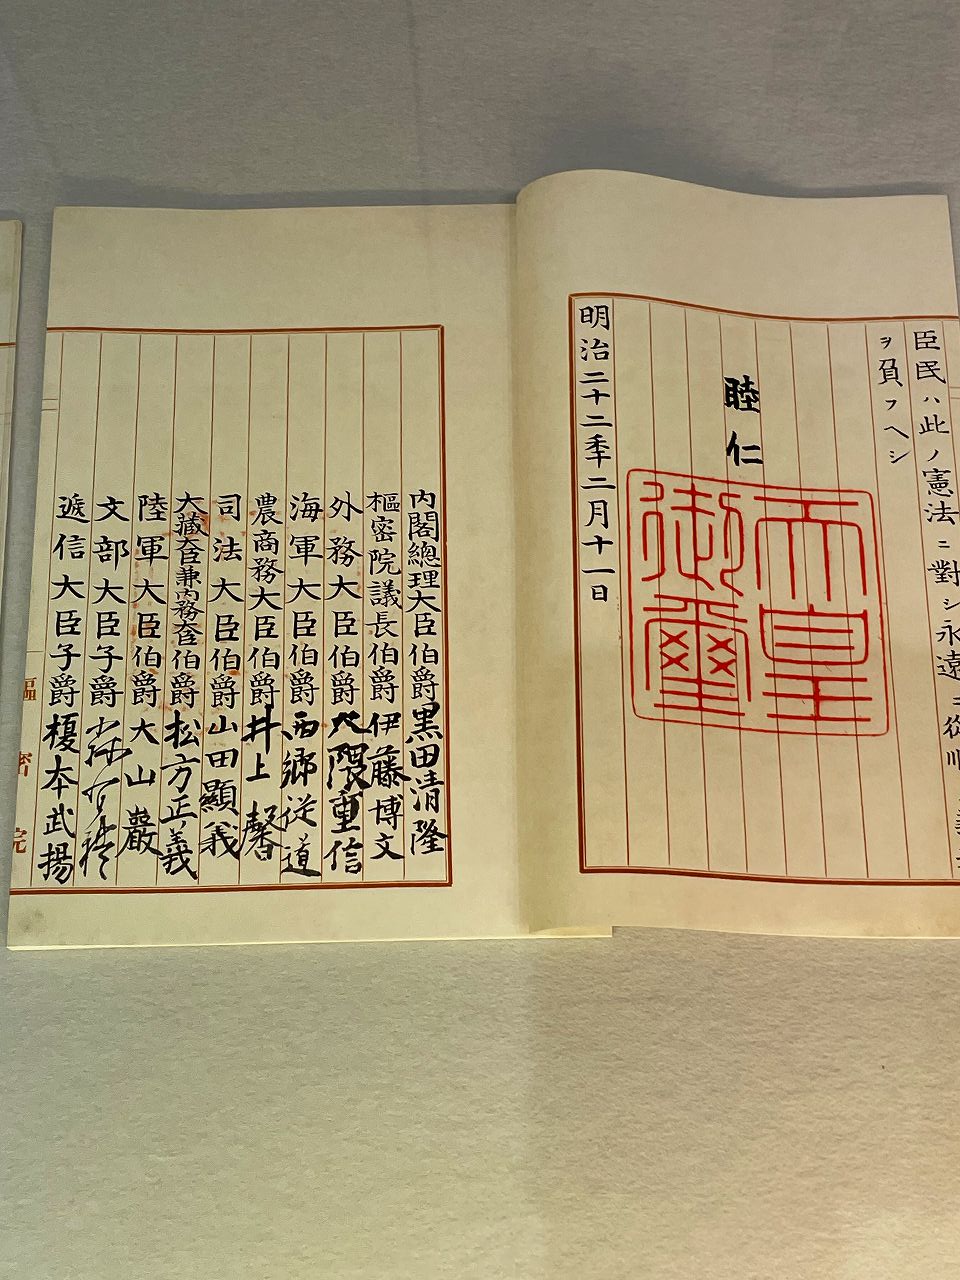 臣民ハ此ノ憲法ニ對シ永遠ニ從順
ヲ負フヘシ
睦仁
天皇御璽
明治二十二年二月十一日
內閣總理大臣伯爵黒田清隆
樞密院議長伯爵伊藤博文
外務大臣伯爵大隈重信
海軍大臣伯爵西鄉従道
農商務大臣伯爵井上馨
司法大臣伯爵山田顯義
大藏大臣兼內務大臣伯爵松方正義
陸軍大臣伯爵大山巖
文部大臣子爵森有禮
遞信大臣子爵榎本武揚
樞密院